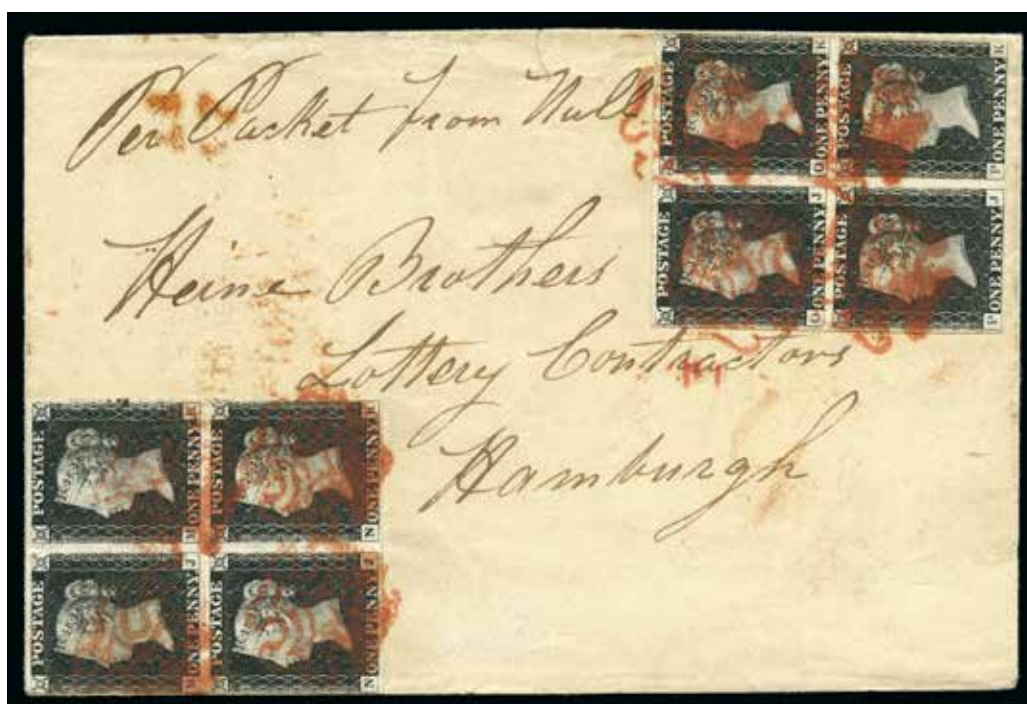 Per Packet from Hull
Heine Brothers
Lottery Contractors
Hamburgh
POSTAGE
O ONE PENNY K
POSTAGE
P ONE PENNY K
POSTAGE
O ONE PENNY J
POSTAGE
P ONE PENNY J
POSTAGE
M ONE PENNY K
POSTAGE
N ONE PENNY K
POSTAGE
M ONE PENNY J
POSTAGE
N ONE PENNY J